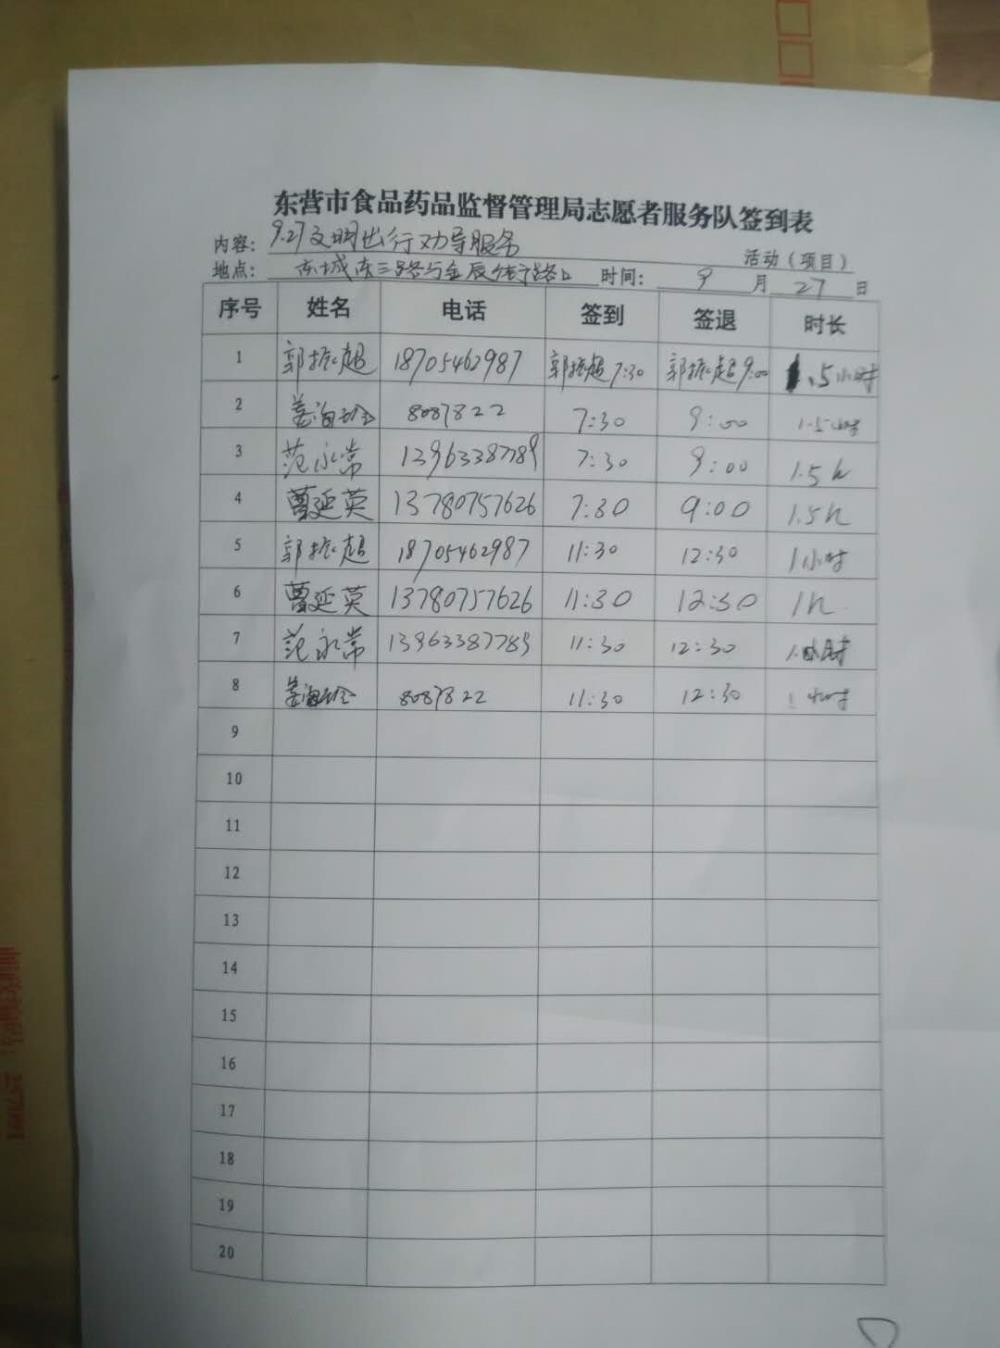 东营市食品药品监督管理局志愿者服务队签到表
内容: 9.27文明出行劝导服务 活动（项目）
地点: 东城东三路与金辰街路口 时间: 9 月 27 日
序号 姓名 电话 签到 签退 时长
1 郭振超 18705462987 郭振超 7:30 郭振超 9:00 1.5小时
2 8087822 7:30 9:00 1.5小时
3 范永常 13963387789 7:30 9:00 1.5h
4 曹延英 13780757626 7:30 9:00 1.5h
5 郭振超 18705462987 11:30 12:30 1小时
6 曹延英 13780757626 11:30 12:30 1h
7 范永常 13963387789 11:30 12:30 1小时
8 8087822 11:30 12:30 1小时
9
10
11
12
13
14
15
16
17
18
19
20